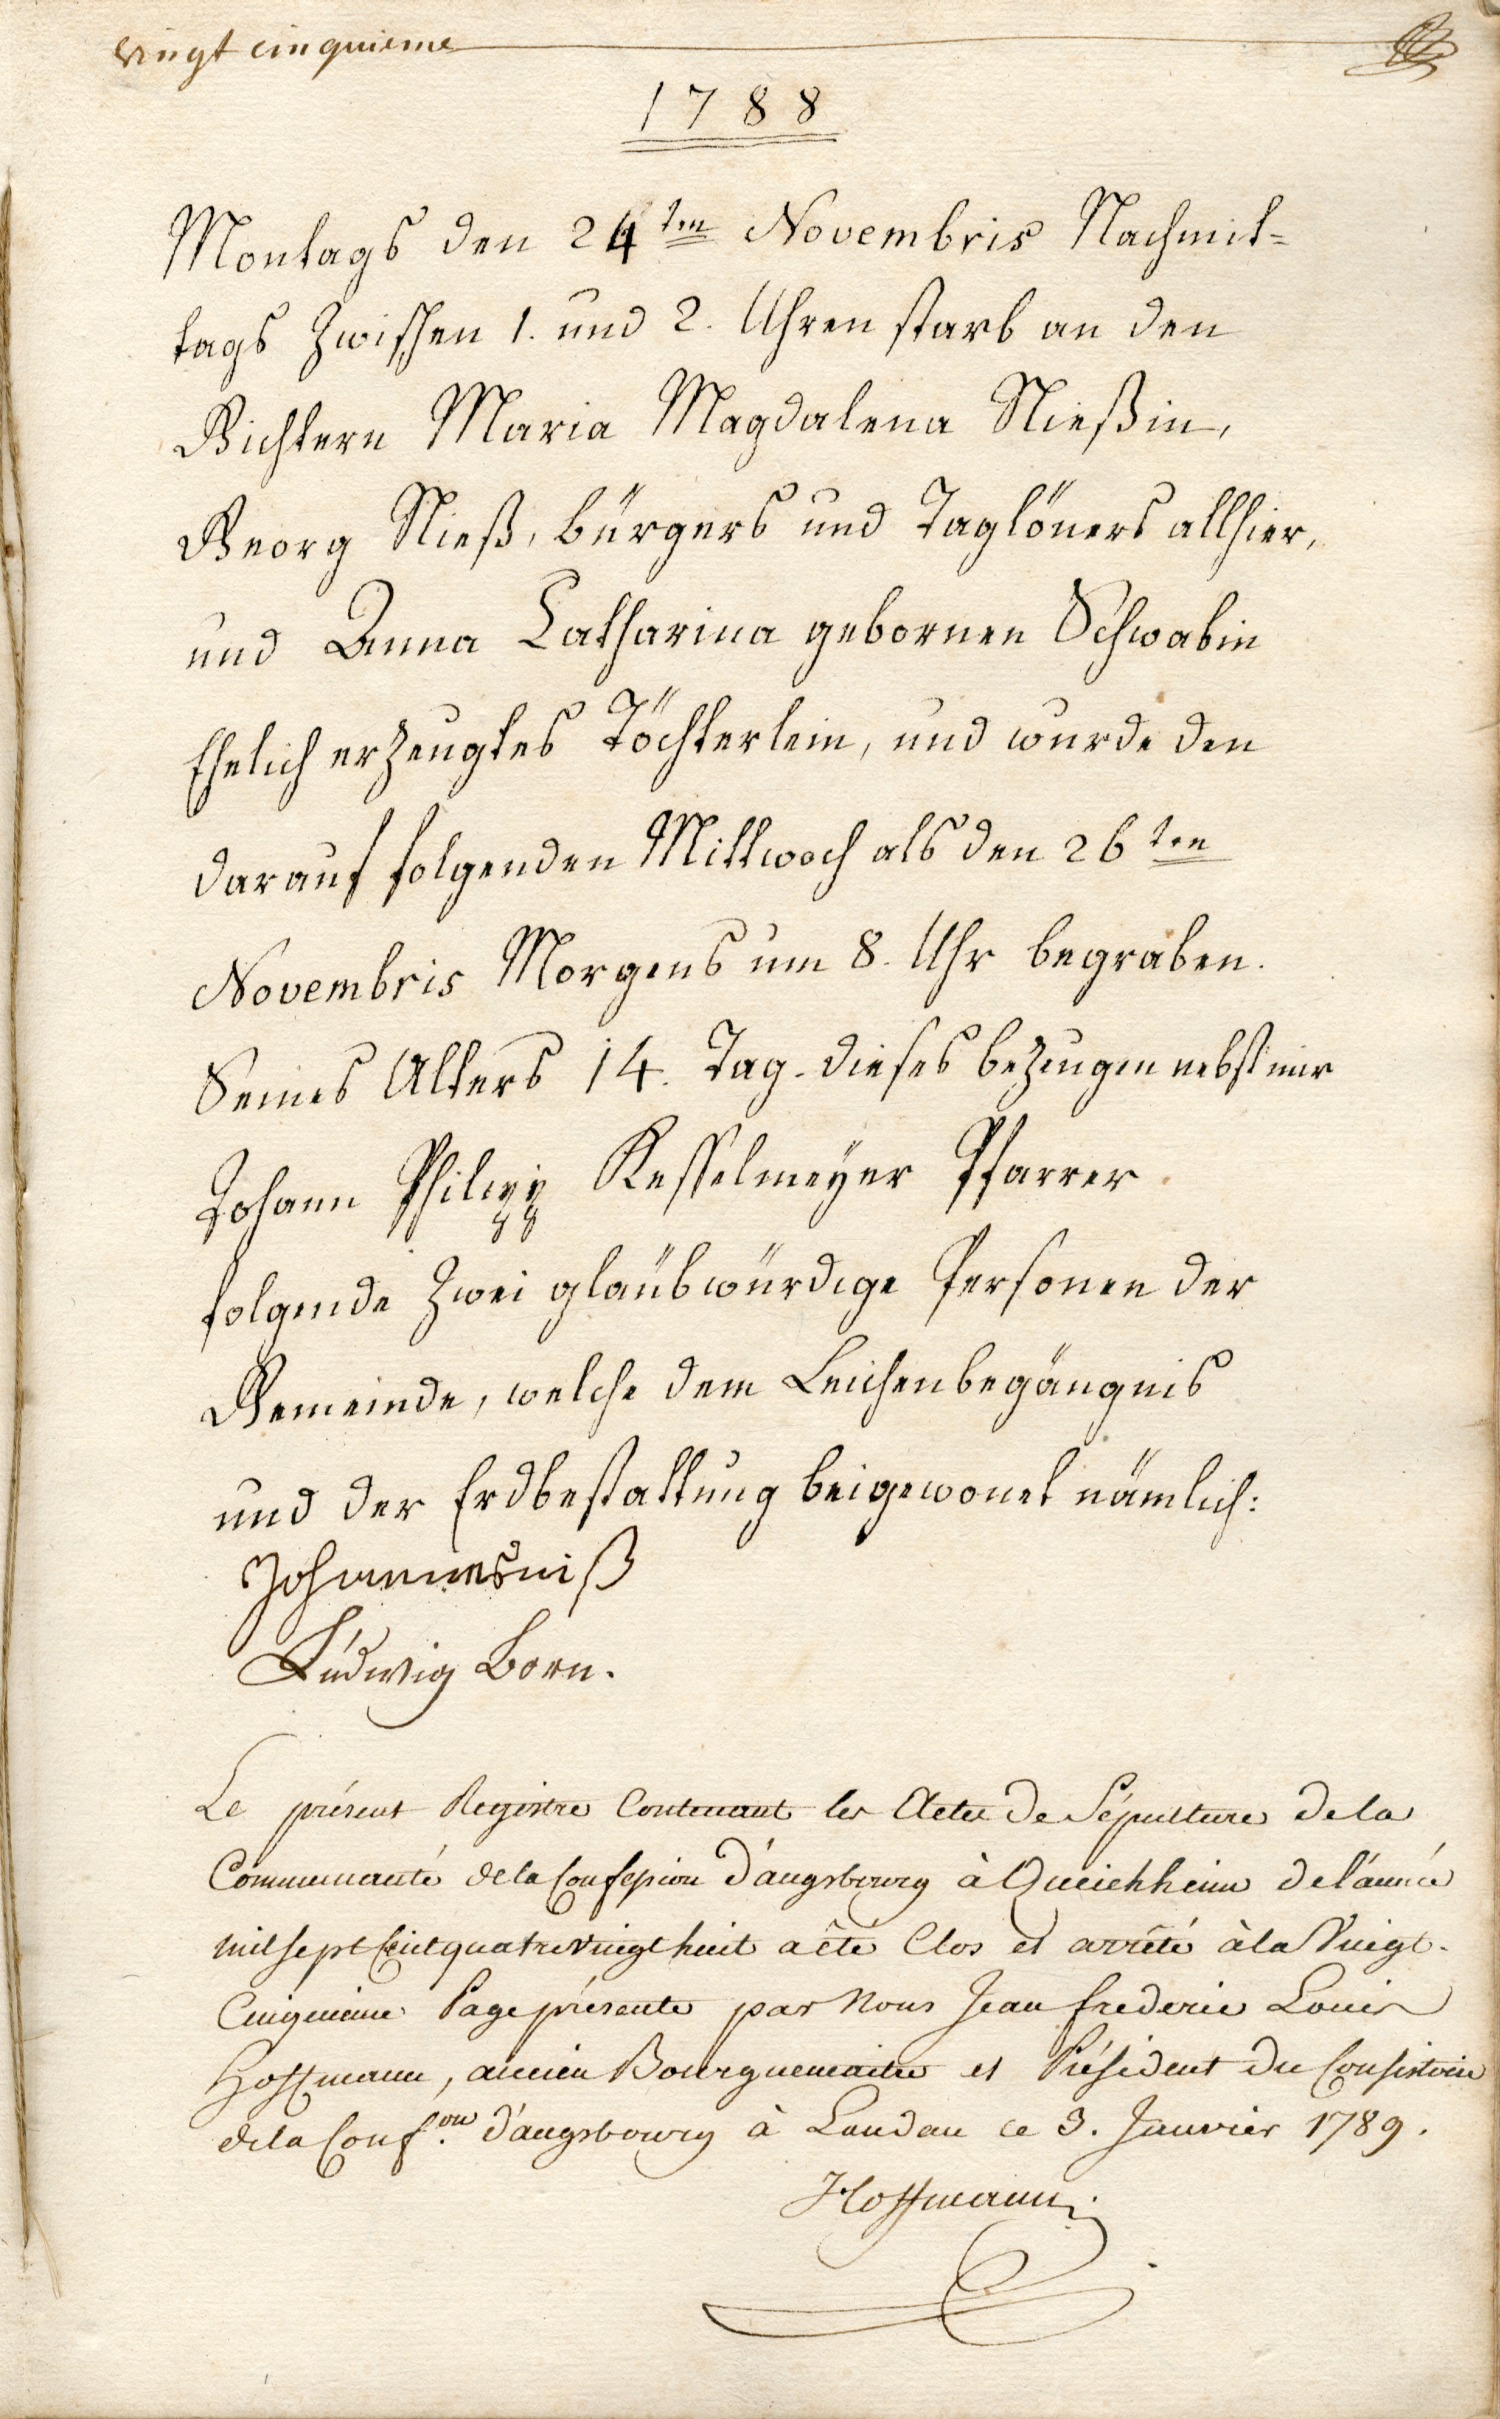 vingt cinquieme
1788
Montags den 24ten Novembris Nachmit=
tags zwischen 1. und 2. Uhren starb an den
Gichtern Maria Magdalena Nießin,
Georg Nieß, bürgers und Taglöners allhier,
und Anna Catharina gebornen Schwabin
Ehelich erzeugtes Töchterlein, und wurde den
darauf folgenden Mittwoch als den 26ten
Novembris Morgens um 8. Uhr begraben.
Seines Alters 14. Tag. dieses bezeugen nebst mir
Johann Philipp Kesselmeÿer Pfarrer
folgende zwei glaübwürdige Personen der
Gemeinde, welche dem Leichenbegängnis
und der Erdbestattung beigewonet nämlich:
Johannes niß
Ludwig Born.
Le présent Registre Contenant les Actes de Sépulture de la
Communauté de la Confession d'augsbourg à Queichheim de l'année
mil sept Cent quatre vingt huit a été Clos et arrêté à la Vingt-
Cinquieme Page présente par Nous Jean frederic Louis
Hoffmann, ancien Bourguemaitre et Président du Consistoire
de la Conf.on d'augsbourg à Landau ce 3. Janvier 1789.
Hoffmann